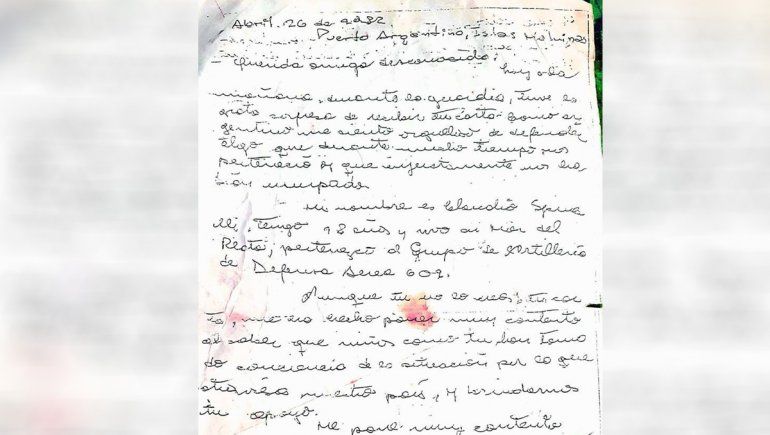 Abril 26 de 1982
Puerto Argentino, Islas Malvinas
Querida amiga desconocida: hoy a la
mañana, durante la guardia, tuve la
grata sorpresa de recibir tu carta. Como ar
gentino me siento orgulloso de defender
algo que durante mucho tiempo nos
perteneció y que injustamente nos ha
bían usurpado.
Mi nombre es Claudio Spina
lli, tengo 18 años y vivo en Mar del
Plata, pertenezco al Grupo de Artillería
de Defensa Aerea 602.
Aunque tu no lo creas, tu car
ta, me ha hecho poner muy contento
al saber que niños como tu han toma
do conciencia de la situación por la que
atraviesa nuestro país, y brindarnos
tu apoyo.
Me pone muy contento